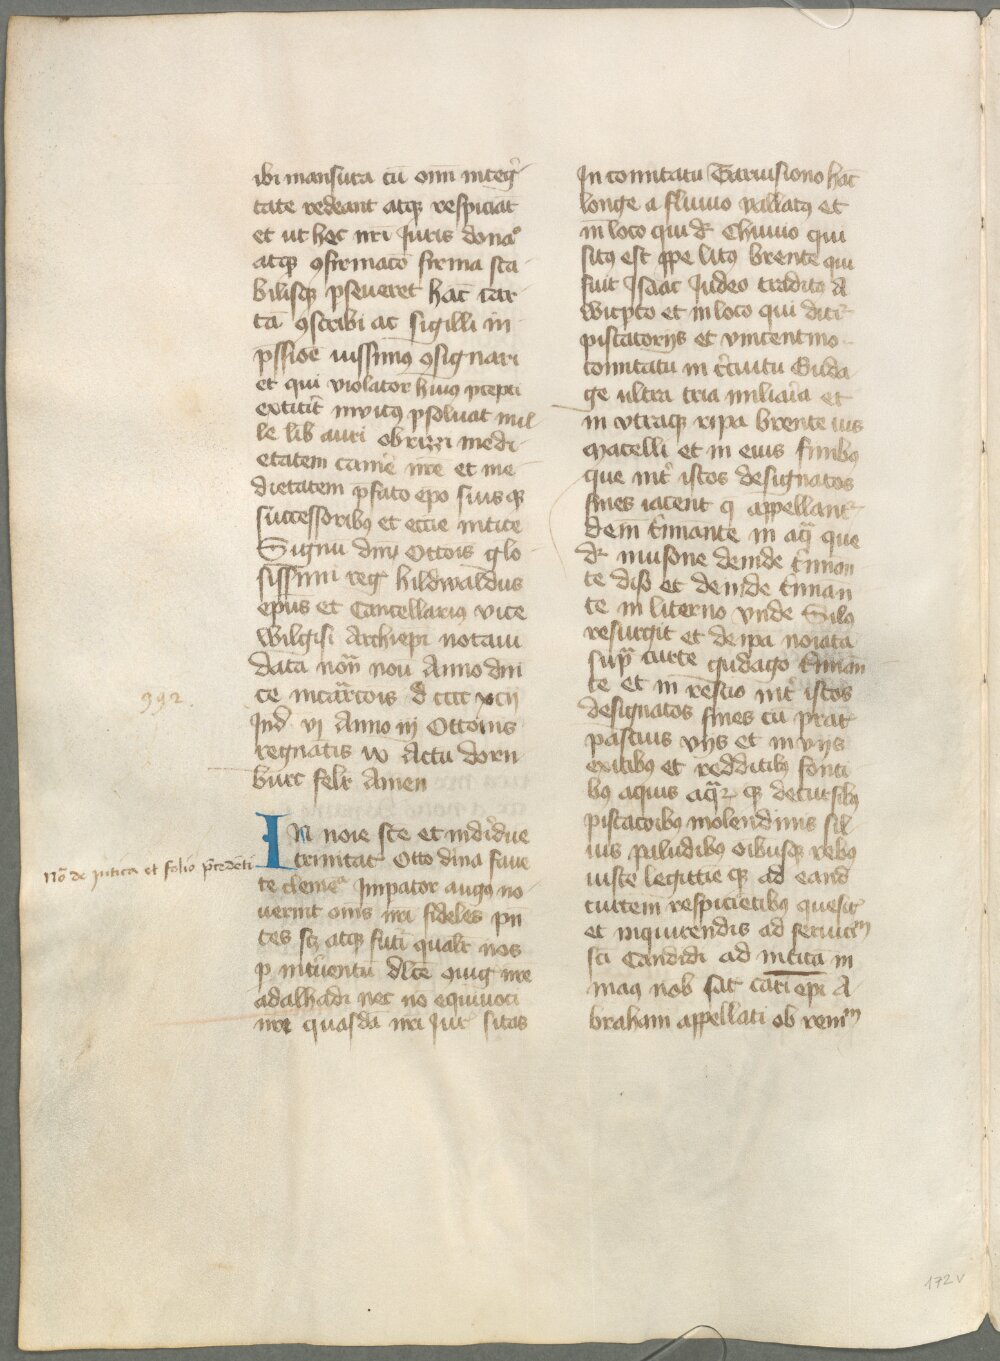 ibi mansura cū om̄i integ̾
tate redeant atqꝫ respiciāt
et ut hec nr̄i Juris donaᵒ
atqꝫ ꝯfirmacō firma sta
bilisqꝫ ꝑseueret hāc car
tā ꝯscribi ac sigilli in
p̄ssioē iussimus ꝯsignari
et qui violator huiꝰ p̄cepti
extitit̾ inuitꝰ ꝑsoluat mil
le lib̄ auri obrizzi medi
etatem cam̄e nr̄e et me
dietatem p̄fato ep̄o suis qꝫ
successoribꝰ et eccīe intice
Signū dn̄i Ottōis glo
sissimi reg̾ hildwaldus
ep̄us et Cancellariꝰ vice
wilgisi Archiep̄i notaui
data non̄ nou Anno dn̄i
ce incar̄cōis d cccc xcii
Ind̄ vj Anno iij Ottōnis
992.
regnātis w Actū dorn
burc felr̄ Amen
In noīe sc̄te et indiūdue
trinitat̾ Otto diīna faue
te clemēᵃ Imꝑator augꝰ no
No͞ de intica et folio p̄cedēti
uerint om̄s nr̄i fideles pn̄
tes scꝫ atqꝫ futi qualr̄ nos
ꝑ int̾uentū dl̄cē ꝯiug̾ nr̄e
adalhadi nec nō equiuoci
nr̄e quasdā nr̄i Jur̾ sitas
In comitatu Taruisiono hac
longe a fluuio vallatꝰ et
in loco qui dr̄ Chiuiio qui
sitꝰ est ꝓpe litꝰ brente qui
fuit Isaac Judeo traditꝰ A
wicpto et in loco qui dicit̾
piscatorijs et vincentino
comitatu in c̾cuitu Gilda
ge ultra tria miliaīa et
in vtraqꝫ ripa brente ius
macelli et in eius finibꝰ
que int̾ istos designatos
fines iacent q̄ appellant̾
dem t̾minante in aq̄ que
dr̄ musone deinde t̾minan
te diso et deinde t̾minan
te in literno vnde Silꝰ
resurgit et de ip̄a noīata
sup̄ curte gudago t̾minan
te et in rescio int̾ istos
designatos fines cū prat̾
pascuis vijs et in vijs
exitibꝰ et redditibꝰ fonti
bꝰ aquis aq̄ꝝ qꝫ decursibꝰ
piscacōibꝰ molendinis sil
uis paludibꝰ oībusqꝫ rebꝰ
iuste legittīe qꝫ ad eand̄
curtem respiciētibꝰ quesit̾
et inquirendis ad seruiciᵐ
sc̄i Candidi ad inticā in
maꝰ nob̄ sat̾ cari ep̄i A
braham appellati ob remᵐ
172v